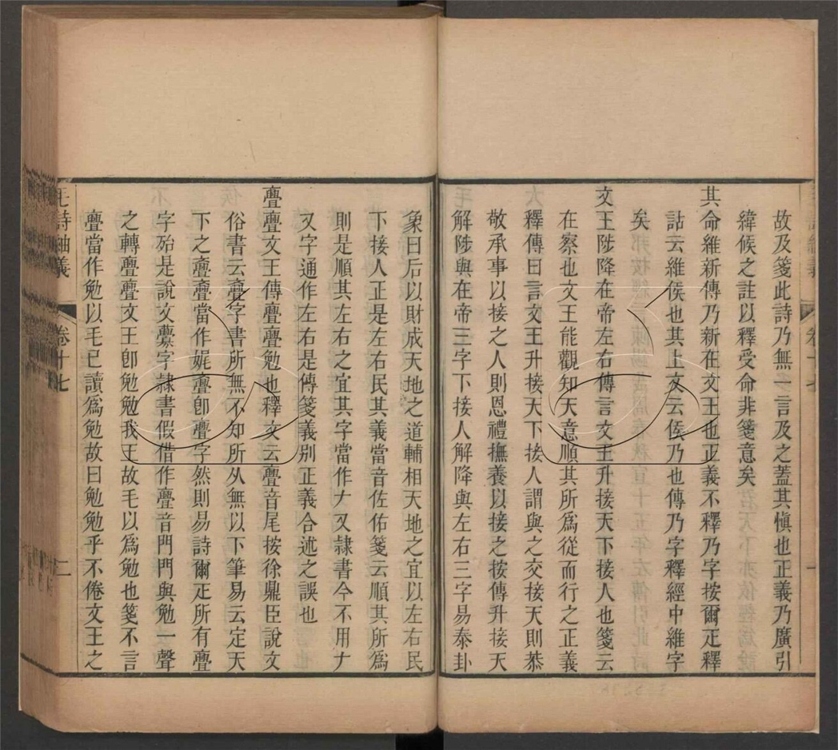 故及箋此詩乃無一言及之蓋其愼也正義乃廣引
緯候之註以釋受命非箋意矣
其命維新傳乃新在文王也正義不釋乃字按爾疋釋
詁云維侯也其上文云侯乃也傳乃字釋經中維字
矣
文王陟降在帝左右傳言文王升接天下接人也箋云
在察也文王能觀知天意順其所爲從而行之正義
釋傳曰言文王升接天下接人謂與之交接天則恭
敬承事以接之人則恩禮撫養以接之按傳升接天
解陟與在帝三字下接人解降與左右三字易泰卦
象曰后以財成天地之道輔相天地之宜以左右民
下接人正是左右民其義當音佐佑箋云順其所爲
則是順其左右之宜其字當作𠂇又隷書今不用𠂇
又字通作左右是傳箋義別正義合述之誤也
亹亹文王傳亹亹勉也釋文云亹音尾按徐鼎臣說文
俗書云亹字書所無不知所从無以下筆易云定天
下之亹亹當作娓亹卽釁字然則易詩爾疋所有亹
字殆是說文釁字隷書假借作亹音門門與勉一聲
之轉亹亹文王卽勉勉我王故毛以爲勉也箋不言
亹當作勉以毛已讀爲勉故曰勉勉乎不倦文王之
毛詩紬義
卷十七
二